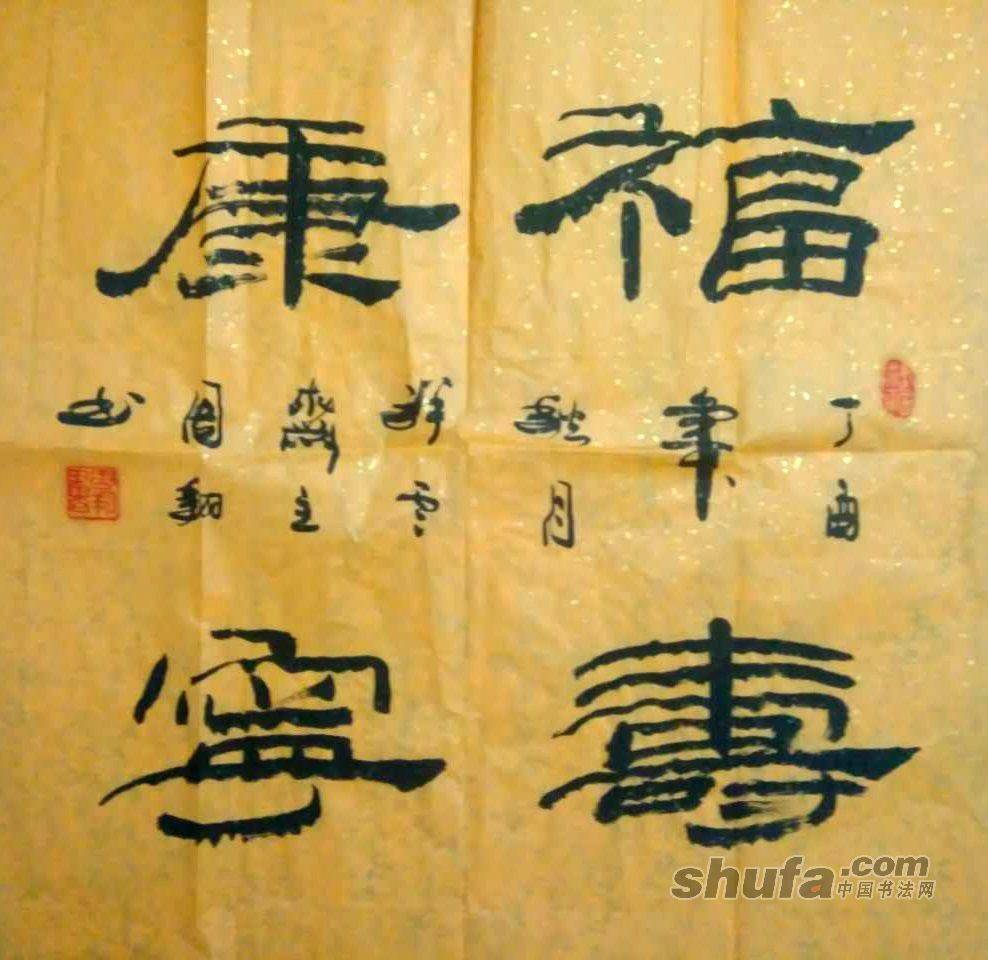 福壽
康寧
丁酉年秋月祥雲齋主周翔书
shufa.com
中国书法网